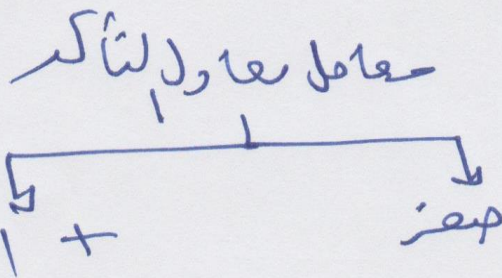 معامل معادل التأكد
صفر
+ ١